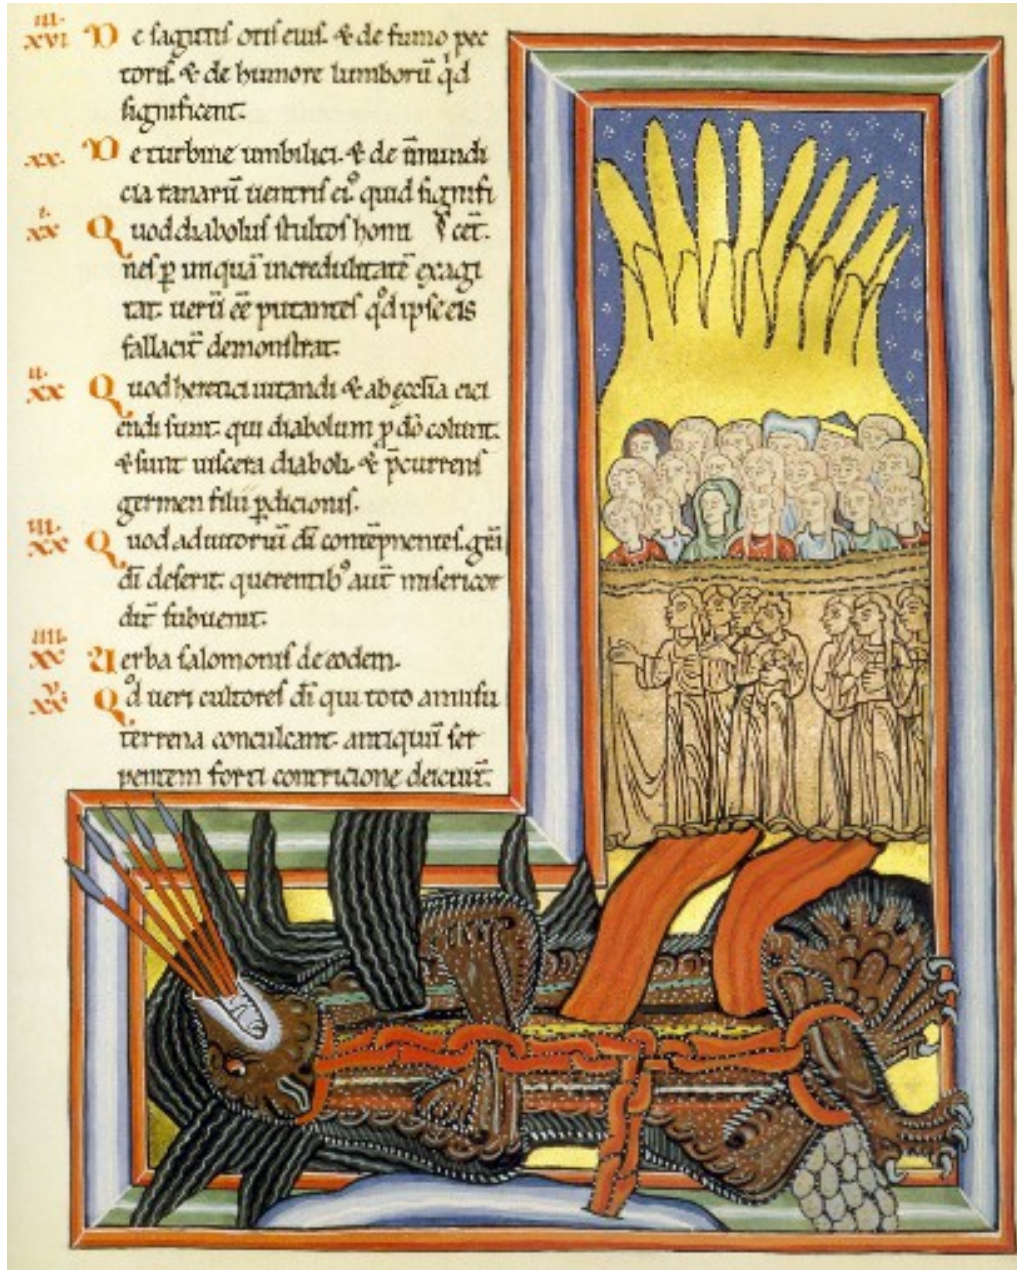 iii.
xvi De sagittis oris eius. & de fumo pec
toris. & de humore lumborū qd
significent.
xx. De turbine umbilici. & de īmundi
cia ventris ei⁹ quid signifi
i.
xx Quod diabolus stultos homi cēt.
nes p unquā incredulitatē exagi
tat. uerū ēē putantes qd ipse eis
fallacit̄ demonstrat.
ii.
xx Quod heretici uitandi & ab ęcclīa eici
endi sunt. qui diabolum p dō colunt.
& sunt uiscera diaboli. & p̄currens
germen filii pdicionis.
iii.
xx Quod adiutoriū dī contēpnentes. grā
dī deserit. querentib⁹ aut̄ misericor
dit̄ subuenit.
iiii.
xx Verba salomonis de eodem.
v.
xx Qd ueri cultores dī qui toto annisu
terrena conculcant. antiquū ser
pentem forti contricione deiciūt.